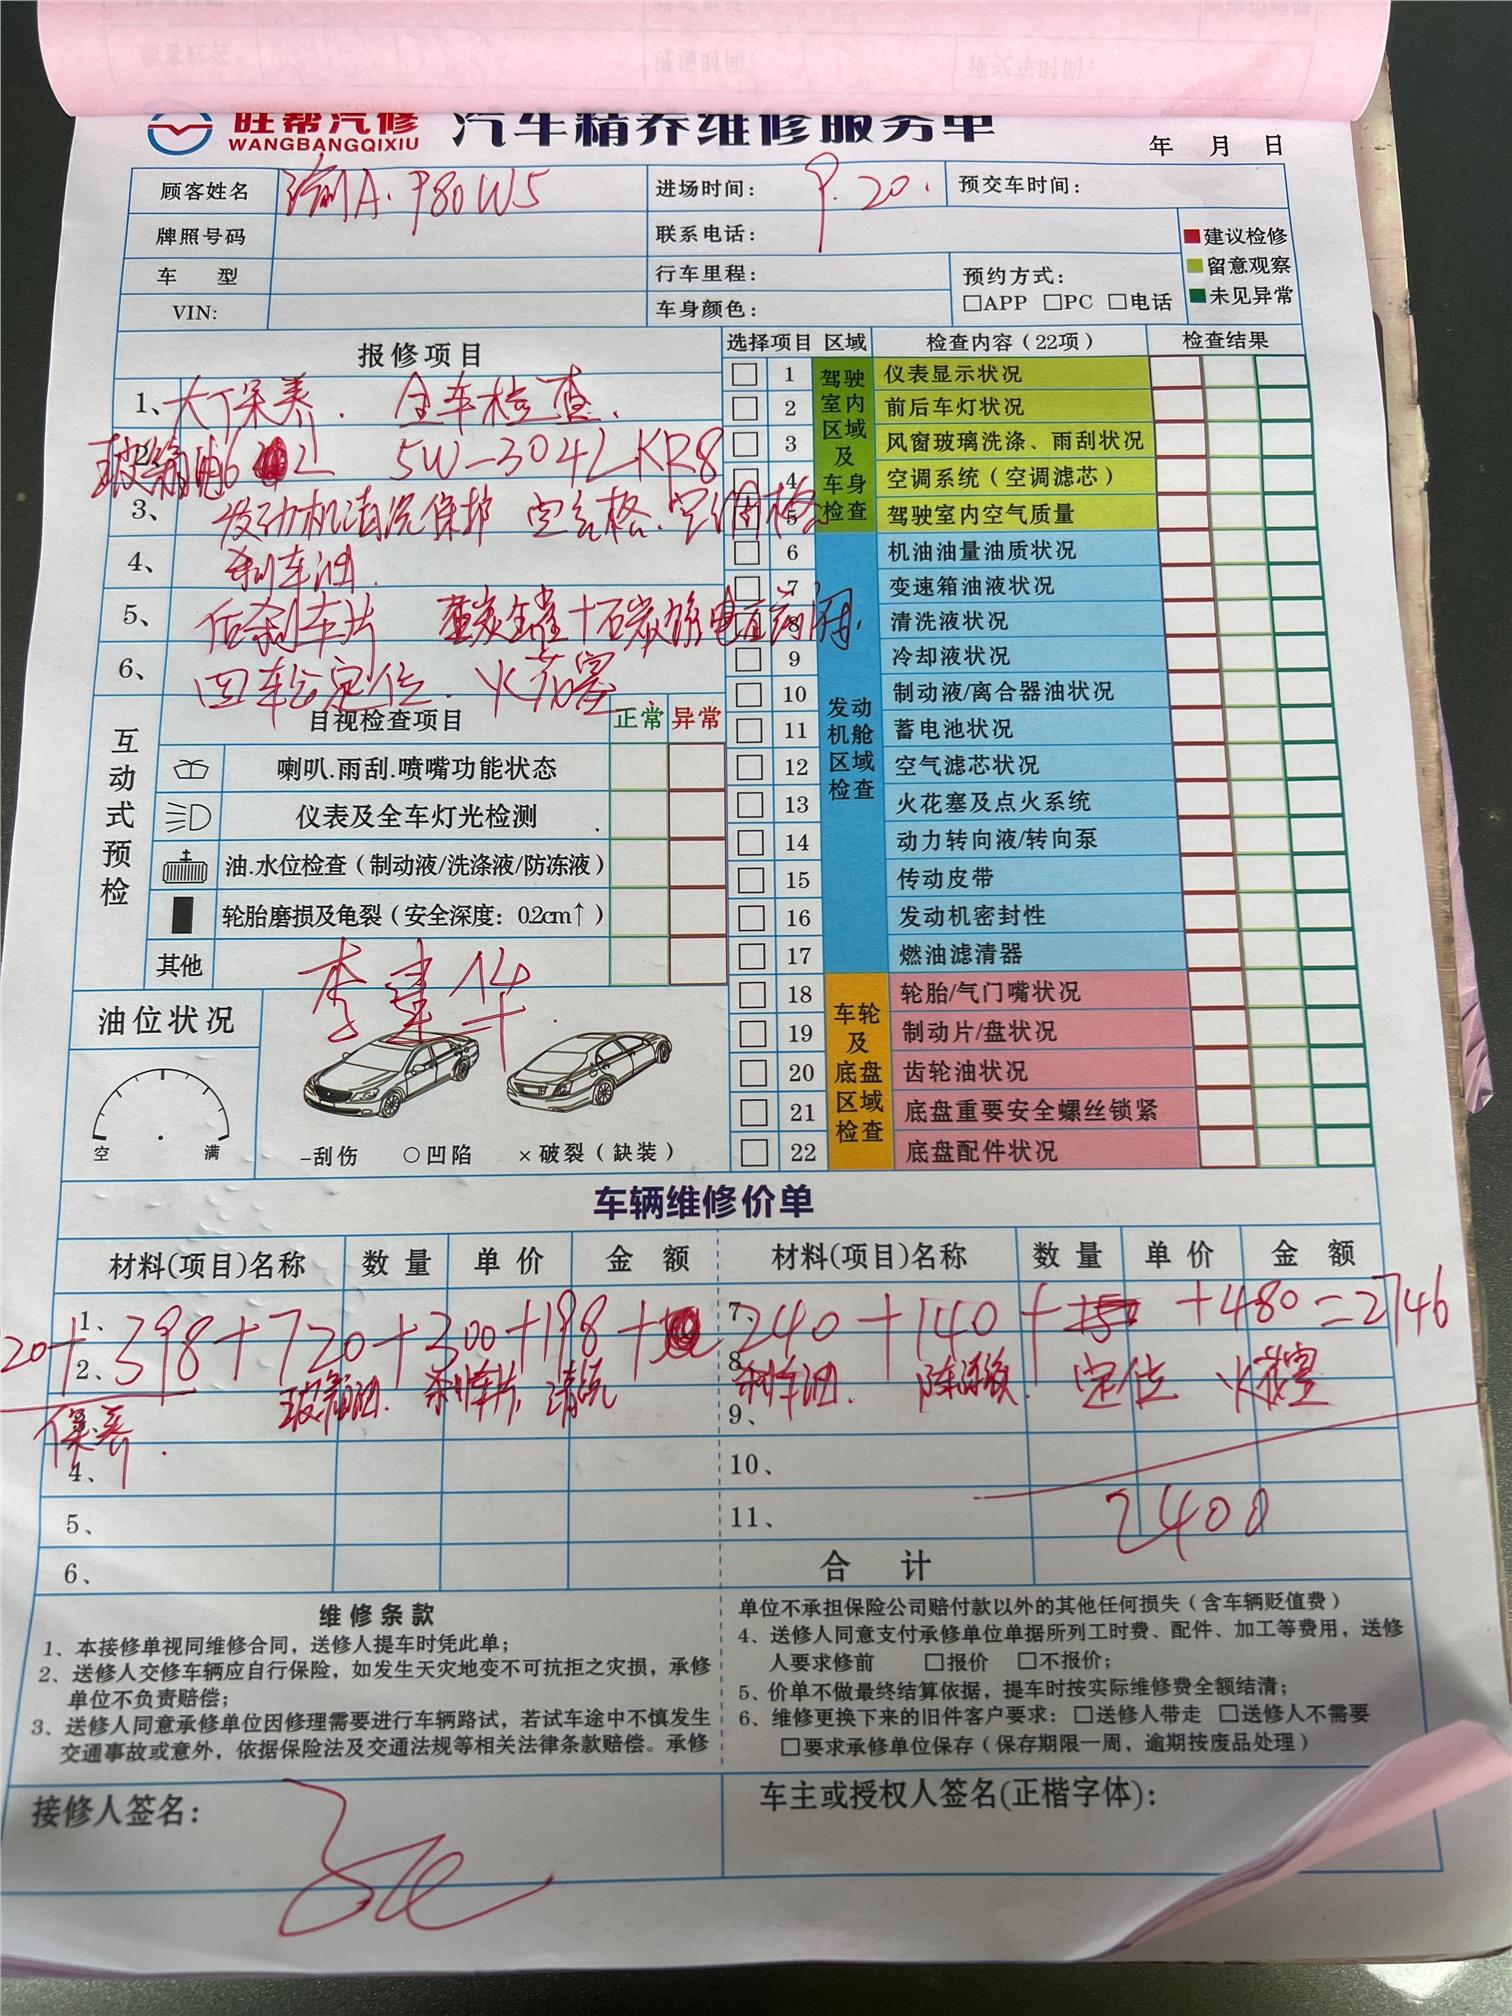 旺帮汽修 汽车精养维修服务单
WANGBANGQIXIU
年 月 日
顾客姓名 渝A·980W5 进场时间： 9.20. 预交车时间：
牌照号码 联系电话：
车 型 行车里程： 预约方式：
□APP □PC □电话
VIN: 车身颜色：
建议检修
留意观察
未见异常
报修项目
1、大保养. 全车检查.
2、变箱油6 2L 5W-30 4L KR8
3、发动机清洗保护 空气格.空调格
4、刹车油.
5、后刹车片
6、四轮定位. 火花塞.
选择项目 区域 检查内容（22项） 检查结果
驾驶室内区域及车身检查
1 仪表显示状况
2 前后车灯状况
3 风窗玻璃洗涤、雨刮状况
4 空调系统（空调滤芯）
5 驾驶室内空气质量
发动机舱区域检查
6 机油油量油质状况
7 变速箱油液状况
8 清洗液状况
9 冷却液状况
10 制动液/离合器油状况
11 蓄电池状况
12 空气滤芯状况
13 火花塞及点火系统
14 动力转向液/转向泵
15 传动皮带
16 发动机密封性
17 燃油滤清器
车轮及底盘区域检查
18 轮胎/气门嘴状况
19 制动片/盘状况
20 齿轮油状况
21 底盘重要安全螺丝锁紧
22 底盘配件状况
互动式预检
目视检查项目 正常 异常
喇叭.雨刮.喷嘴功能状态
仪表及全车灯光检测
油.水位检查（制动液/洗涤液/防冻液）
轮胎磨损及龟裂（安全深度：0.2cm↑）
其他
李建华
油位状况
空 满
–刮伤 ○凹陷 ×破裂（缺装）
车辆维修价单
材料(项目)名称 数 量 单 价 金 额 材料(项目)名称 数 量 单 价 金 额
1、 7、
20+398+720+300+198+ 240+140+ +480=2746
2、 8、
保养. 变箱油. 刹车片. 清洗 刹车油. 定位 火花塞
9、
4、 10、
5、 11、 2400
6、 合 计
维修条款
1、本接修单视同维修合同，送修人提车时凭此单；
2、送修人交修车辆应自行保险，如发生天灾地变不可抗拒之灾损，承修
单位不负责赔偿；
3、送修人同意承修单位因修理需要进行车辆路试，若试车途中不慎发生
交通事故或意外，依据保险法及交通法规等相关法律条款赔偿。承修
单位不承担保险公司赔付款以外的其他任何损失（含车辆贬值费）
4、送修人同意支付承修单位单据所列工时费、配件、加工等费用，送修
人要求修前 □报价 □不报价；
5、价单不做最终结算依据，提车时按实际维修费全额结清；
6、维修更换下来的旧件客户要求：□送修人带走 □送修人不需要
□要求承修单位保存（保存期限一周，逾期按废品处理）
接修人签名： 车主或授权人签名(正楷字体)：